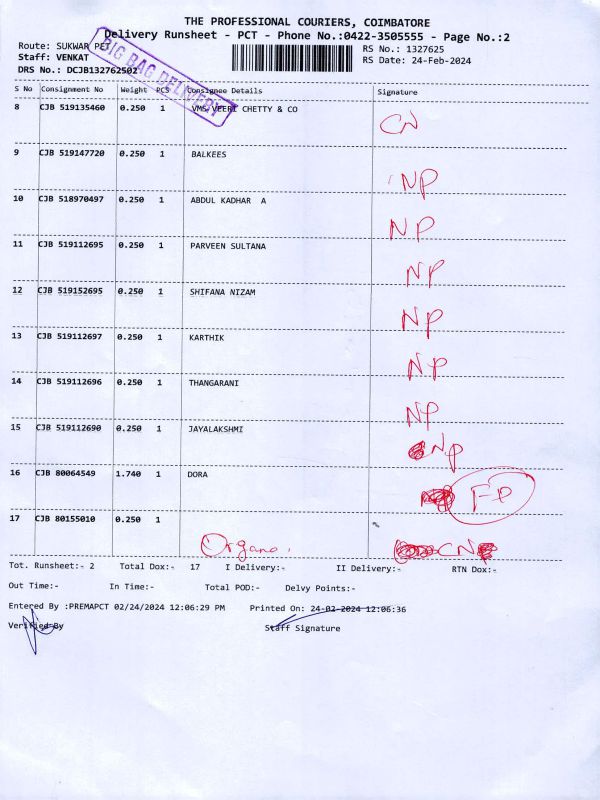 THE PROFESSIONAL COURIERS, COIMBATORE
Delivery Runsheet - PCT - Phone No.:0422-3505555 - Page No.:2
Route: SUKWAR PET
RS No.: 1327625
Staff: VENKAT
RS Date: 24-Feb-2024
DRS No.: DCJB132762502
BIG BAG DELIVERY
S No Consignment No Weight PCS Consignee Details Signature
8 CJB 519135460 0.250 1 VMS VEERI CHETTY & CO CN
9 CJB 519147720 0.250 1 BALKEES NP
10 CJB 518970497 0.250 1 ABDUL KADHAR A NP
11 CJB 519112695 0.250 1 PARVEEN SULTANA NP
12 CJB 519152695 0.250 1 SHIFANA NIZAM NP
13 CJB 519112697 0.250 1 KARTHIK NP
14 CJB 519112696 0.250 1 THANGARANI NP
15 CJB 519112690 0.250 1 JAYALAKSHMI NP
16 CJB 80064549 1.740 1 DORA F-P
17 CJB 80155010 0.250 1 Organo. CN
Tot. Runsheet:- 2 Total Dox:- 17 I Delivery:- II Delivery:- RTN Dox:-
Out Time:- In Time:- Total POD:- Delvy Points:-
Entered By :PREMAPCT 02/24/2024 12:06:29 PM Printed On: 24-02-2024 12:06:36
Verified By Staff Signature